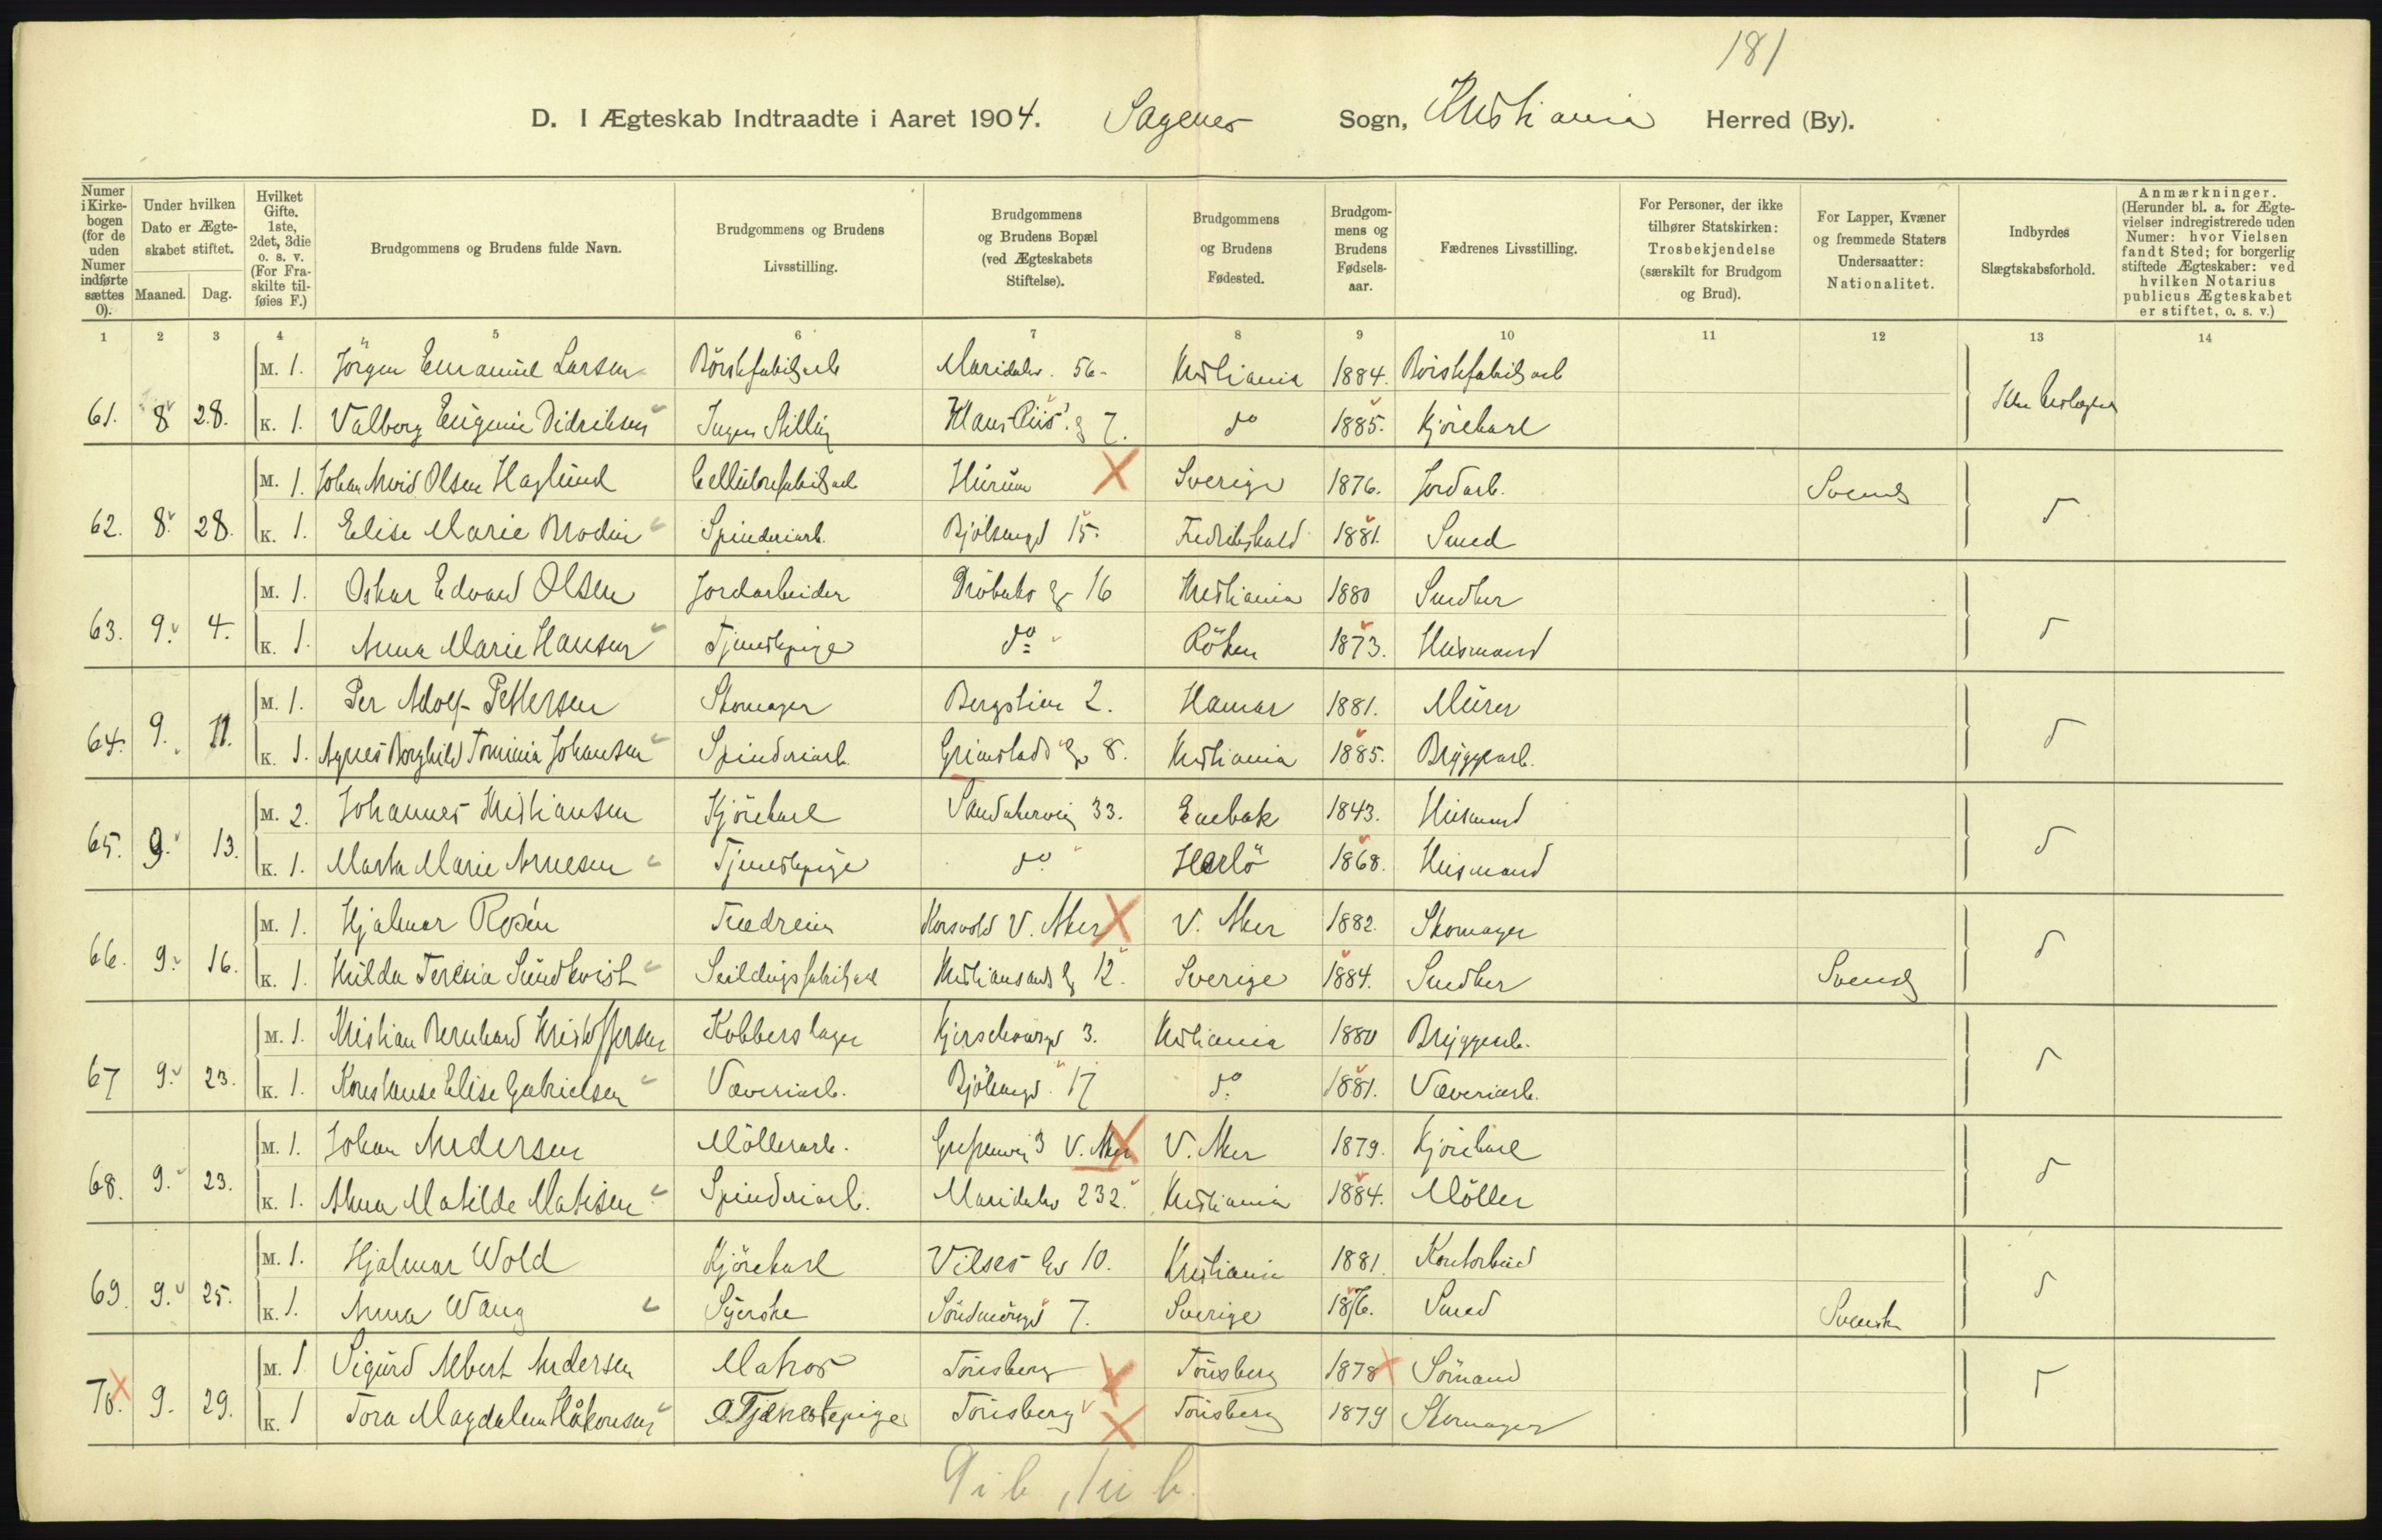 181
D. I Ægteskab Indtraadte i Aaret 1904. Sagenes Sogn, Kristiania Herred (By).
Numer i Kirkebogen (for de uden Numer indførte sættes 0).
Under hvilken Dato er Ægteskabet stiftet.
Maaned. Dag.
Hvilket Gifte. 1ste, 2det, 3die o. s. v. (For Fraskilte tilføies F.)
Brudgommens og Brudens fulde Navn.
Brudgommens og Brudens Livsstilling.
Brudgommens og Brudens Bopæl (ved Ægteskabets Stiftelse).
Brudgommens og Brudens Fødested.
Brudgommens og Brudens Fødselsaar.
Fædrenes Livsstilling.
For Personer, der ikke tilhører Statskirken: Trosbekjendelse (særskilt for Brudgom og Brud).
For Lapper, Kvæner og fremmede Staters Undersaatter: Nationalitet.
Indbyrdes Slægtskabsforhold.
Anmærkninger. (Herunder bl. a. for Ægtevielser indregistrerede uden Numer: hvor Vielsen fandt Sted; for borgerlig stiftede Ægteskaber: ved hvilken Notarius publicus Ægteskabet er stiftet, o. s. v.)
1 2 3 4 5 6 7 8 9 10 11 12 13 14
M. 1. Jörgen Emanuel Larsen Börstefabriksarb Maridalsv. 56 Kristiania 1884. Börstefabriksarb
61. 8 28. K. 1. Valborg Eugenie Didriksen Ingen Stilling Klaus Riis' g 7. do 1885. Kjörekarl
M. 1. Johan Arvid Olsen Haglund Cellulosefabriksarb Hurum Sverige 1876. Jordarb. Svensk
62. 8. 28. K. 1. Elise Marie Brodin Spinderiarb. Bjölsengd 15. Fredrikshald 1881. Smed
M. 1. Oskar Edvard Olsen Jordarbeider Dröbaks g 16 Kristiania 1880 Snedker
63. 9. 4. K. 1. Anna Marie Hansen Tjenestepige do Röken 1873. Husmand
M. 1. Per Adolf Pettersen Skomager Bergstien 2. Hamar 1881. Murer
64. 9. 11. K. 1. Agnes Borghild Tomine Johansen Spinderiarb. Grimstads g 8. Kristiania 1885. Bryggearb.
M. 2. Johannes Kristiansen Kjörekarl Sandakervei 33. Enebak 1843. Husmand
65. 9. 13. K. 1. Marta Marie Arnesen Tjenestepige do. Herlö 1868. Husmand
M. 1. Hjalmar Rosén Trædreier Korsvold V. Aker V. Aker 1882. Skomager
66. 9. 16. K. 1. Hulda Teresia Sundkvist Seildugsfabriksarb Kristiansands g 12. Sverige 1884. Snedker Svensk
M. 1. Kristian Bernhard Kristoffersen Kobberslager Kjerschowsgd 3. Kristiania 1880 Bryggearb.
67 9. 23. K. 1. Konstanse Elise Gabrielsen Væveriarb. Bjölsengd. 17 do. 1881. Væveriarb.
M. 1. Johan Andersen Möllerarb. Grefsenvei 3 V. Aker V. Aker 1879. Kjörekarl
68. 9. 23. K. 1. Anna Matilde Matisen Spinderiarb. Maridalsv 232. Kristiania 1884. Möller
M. 1. Hjalmar Wold Kjörekarl Vilses g 10. Kristiania 1881. Kontorbud
69. 9. 25. K. 1. Anna Wang Syerske Söndmörsgd 7. Sverige 1876. Smed Svensk
M. 1 Sigurd Albert Andersen Matros Tönsberg Tönsberg 1878 Sömand
70. 9. 29. K. 1 Tora Magdalene Håkonsen Tjenestepige Tönsberg Tönsberg 1879 Skomager
9 i b,